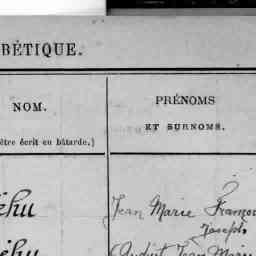 BÉTIQUE.
NOM.
PRÉNOMS
ET SURNOMS.
être écrit en bâtarde.)
éhu
Jean Marie François
Joseph
éhu
Jean Marie